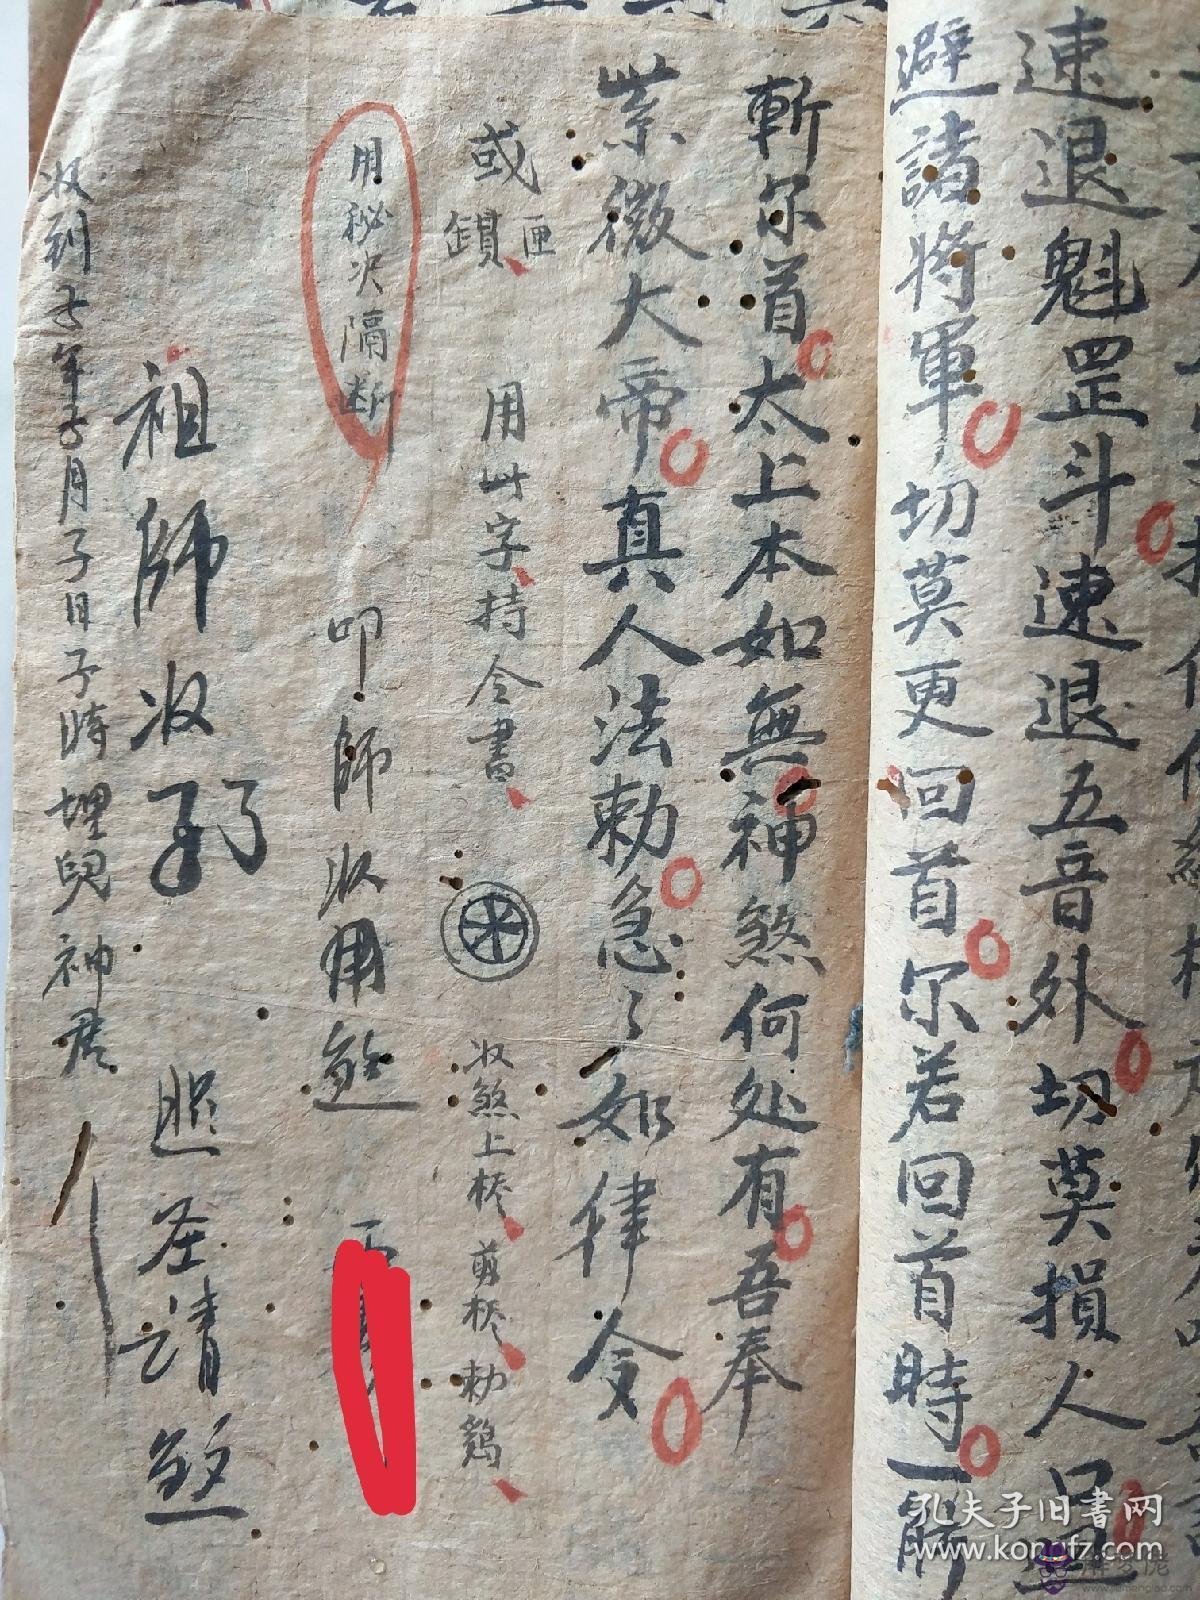 速退魁罡斗速退五音外切莫損人口
避諸將軍切莫更回首尔若回首時一
斬尔首太上本如無神煞何处有吾奉
紫微大帝真人法勅急了如律令
或
匣
鎖
用此字持令書
收煞上栘剪栘勅鷄
用秘决隔断
叩師收用煞
祖師收
聖請煞
收到子年子月子日子時埋兒神君
孔夫子旧書网
www.kongfz.com
www.jiemengjia.com